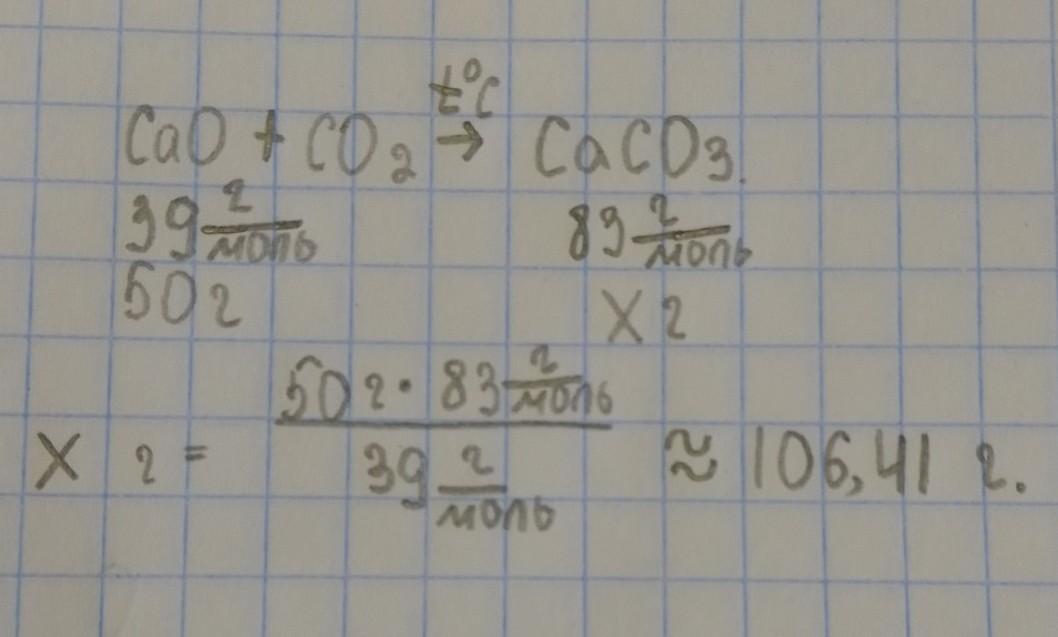 t°C
CaO + CO₂ → CaCO₃.
39 г/моль 83 г/моль
50 г X г
X г = 50 г · 83 г/моль / 39 г/моль ≈ 106,41 г.